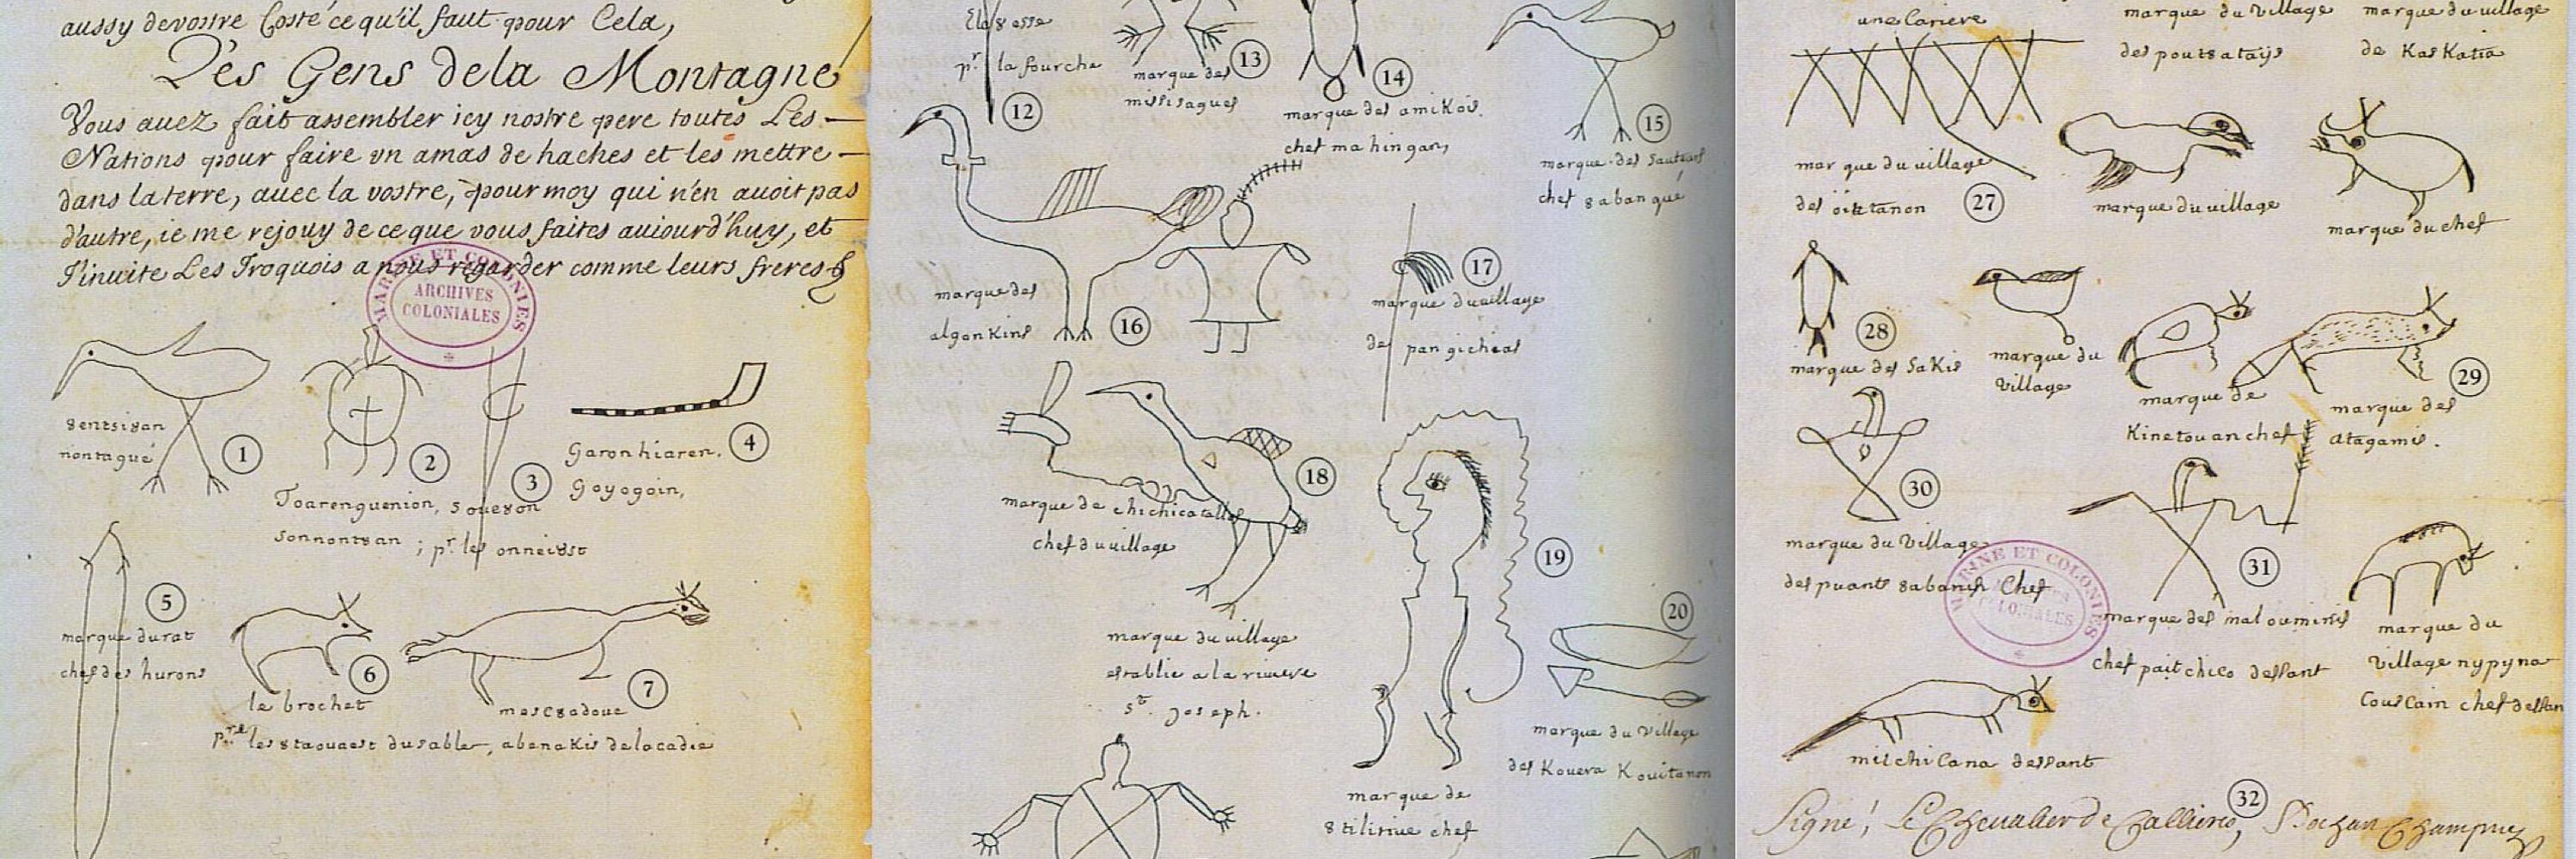 aussy de vostre Costé ce qu'il faut pour Cela,
Les Gens dela Montagne
Vous auez fait assembler icy nostre pere toutes Les
Nations pour faire vn amas de haches et les mettre
dans la terre, auec la vostre, pour moy qui n'en auoit pas
d'autre, ie me rejouy de ce que vous faites auiourd'huy, et
J'inuite Les Iroquois a nous regarder comme leurs freres
MARINE ET COLONIES
ARCHIVES
COLONIALES
8entsi8an
nontagué
1
2
Toarenguenion,
sonnont8an
3
so8e8on
; pr. les onnei8st
4
Garonhiaren.
Goyogoin,
5
marque du rat
chef des hurons
6
le brochet
7
mesc8adoue
pre les 8taouaest du sable, abenakis de lacadie
pr. la fourche
12
marque des
missisagues
13
14
marque des amikois.
chef mahingan,
15
marque des Sauteurs
chef 8abangué
marque des
algonkins
16
17
marque du village
de pangicheas
marque de chichicatalles
chef du village
18
marque du village
establie a la riuiere
st. Joseph.
19
marque de
8tilirine chef
20
marque du village
des Kouera Kouitanon
une Cariere
marque du village
des poutsatays
marque du village
de KasKatia
marque du village
des oietanon
27
marque du village
marque du chef
28
marque des Sakis
marque du
village
marque de
Kinetouan chef
29
marque des
atagamis.
30
marque du Village
des puants 8abanish Chef
31
marque des malouminis
chef paitchico dessant
marque du
village nypyna
Couscain chef dessan
MARINE ET COLONIES
COLONIALES
mischicana dessant
32
Signé, Le Chevalier de Callieres, Bochart Champigny